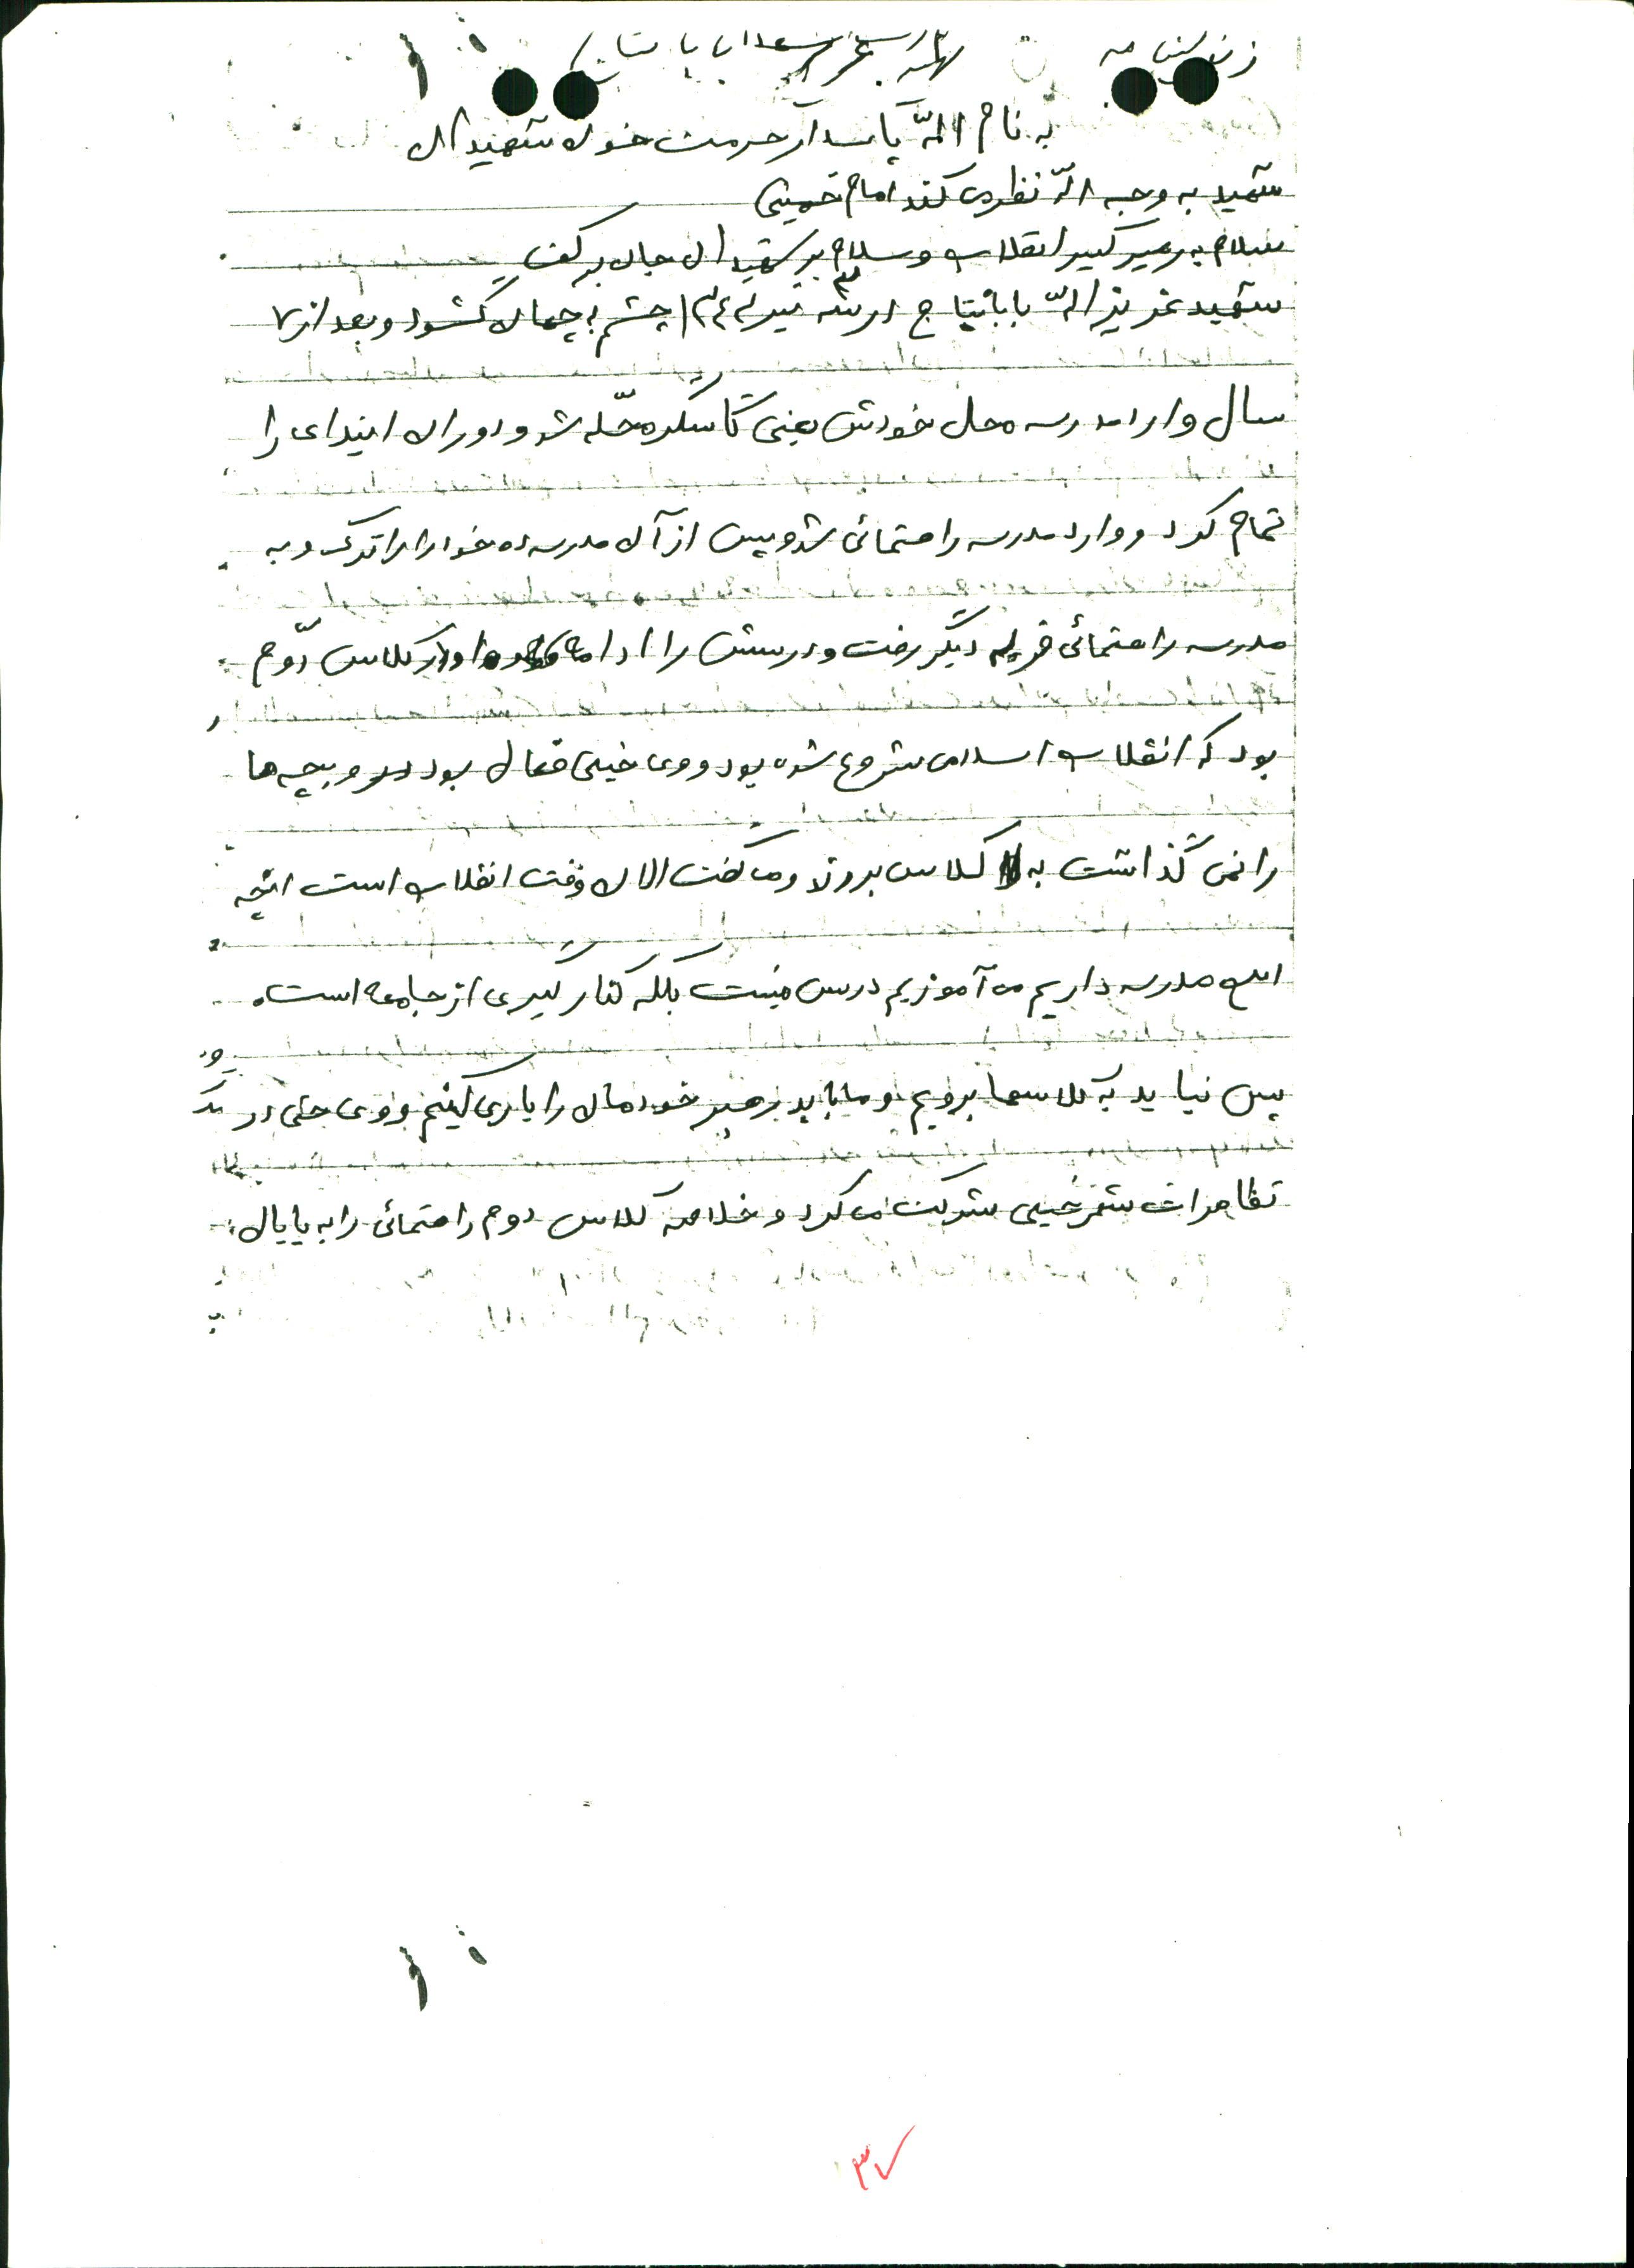 زندگینامه شهید عزیز الله بابانتاج
به نام اللّه پاسدار حرمت خون شهیدان
شهید به وجه اللّه نظر می کند امام خمینی
سلام به رهبر کبیر انقلاب و سلام بر شهیدان جان بر کف
شهید عزیز اللّه بابانتاج در تیر ۱۳۴۳ چشم به جهان گشود و بعد از ۷
سال وارد مدرسه محل خودش یعنی کاشگر محلّه شد و دوران ابتدای را
تمام کرد و وارد مدرسه راهنمائی شد و پس از آن مدرسه ده خود را ترک و به
مدرسه راهنمائی قریه دیگر رفت و درسش را ادامه داد او در کلاس دوّم
بود که انقلاب اسلامی شروع شده بود و وی خیلی فعال بود و بچه ها
را نمی گذاشت به کلاس بروند و می گفت الان وقت انقلاب است انچه
مدرسه داریم می آموزیم درس نیست بلکه کنار گیری از جامعه است.
پس نباید به کلاسها برویم و ما باید رهبر خودمان را یاری کنیم و وی حتی در
تظاهرات شهر خیلی شرکت می کرد و خلاصه کلاس دوم راهنمائی را به پایان
۳۷